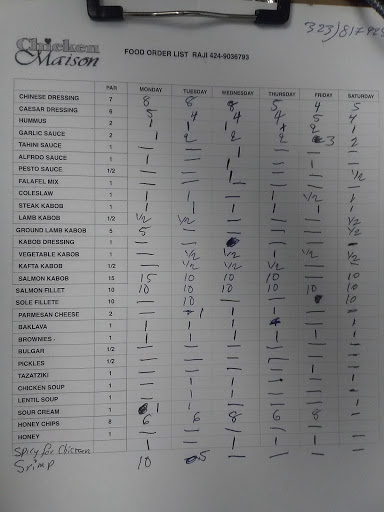 323)817
Chicken
Maison
FOOD ORDER LIST RAJI 424-9036793
PAR MONDAY TUESDAY WEDNESDAY THURSDAY FRIDAY SATURDAY
CHINESE DRESSING 7 8 8 8 5 4 5
CAESAR DRESSING 6 5 4 4 4 5 4
HUMMUS 2 1 1 1 1 2 1
GARLIC SAUCE 2 1 2 2 2 3 2
TAHINI SAUCE 1 — — 1 — — —
ALFROO SAUCE 1 1 — 1 — — —
PESTO SAUCE 1/2 — — 1 — — 1/2
FALAFEL MIX 1 — — 1 — — —
COLESLAW 1 1 1 — 1 1/2 1
STEAK KABOB 1 1 1 1 1 1 1
LAMB KABOB 1/2 1/2 1/2 — — — 1/2
GROUND LAMB KABOB 5 5 — — — — 1/2
KABOB DRESSING 1 — — — — —
VEGETABLE KABOB 1 — 1/2 1/2 1 1/2 1/2
KAFTA KABOB 1/2 — 1/2 1/2 1/2 — —
SALMON KABOB 15 15 10 10 10 — 10
SALMON FILLET 10 10 10 10 10 10 10
SOLE FILLETE 10 — 10 — — 10
PARMESAN CHEESE 2 — 1 1 1 — —
BAKLAVA 1 1 1 1 1 1
BROWNIES 1 1 1 1 1 1 1
BULGAR 1/2 — — — — — —
PICKLES 1/2 — — — — — —
TAZATZIKI 1 — — — — 1 —
CHICKEN SOUP 1 — 1 1 — — 1
LENTIL SOUP 1 — 1 1 — — 1
SOUR CREAM 1 1 1 — — — —
HONEY CHIPS 8 6 6 8 6 8
HONEY 1 — — — — — —
Spicy for Chicken 1 — 1 1 1 —
Srimp 10 5 — — — —